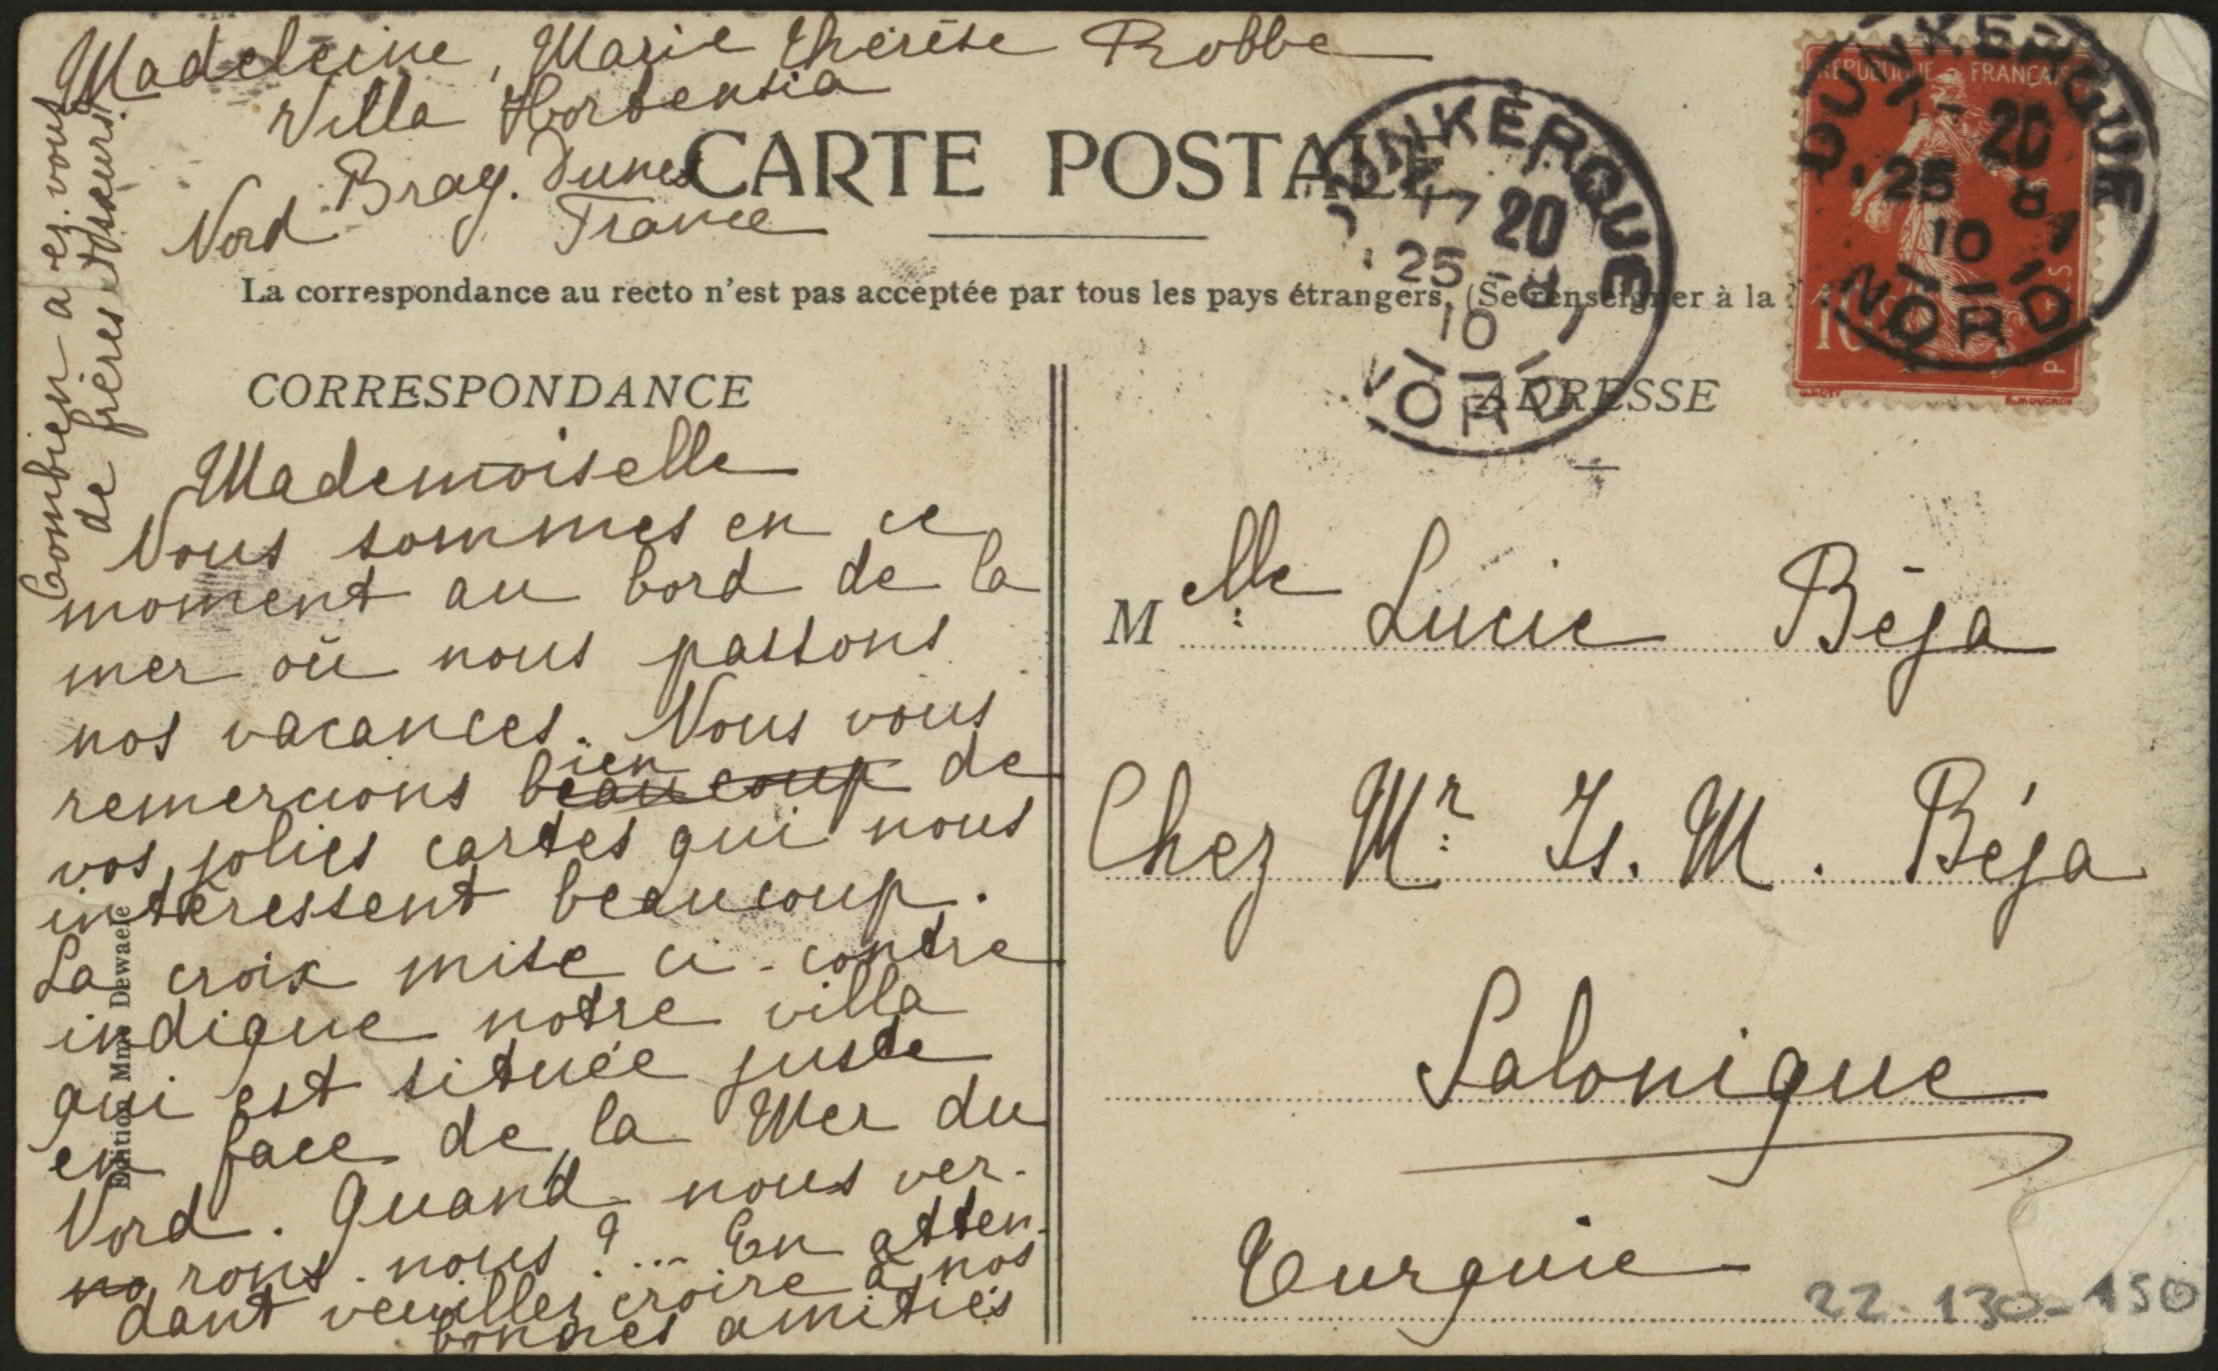 Madeleine, Marie Thérèse Robbe
Villa Hortensia
Bray-Dunes
Nord France
CARTE POSTALE
La correspondance au recto n'est pas acceptée par tous les pays étrangers, (Se renseigner à la
DUNKERQUE
17 20
25 - 8
10
NORD
REPUBLIQUE FRANCAISE
DUNKERQUE
17 20
25 8
10
NORD
10
POSTES
Combien avez-vous
de frères et sœurs?
CORRESPONDANCE
ADRESSE
Mademoiselle
Nous sommes en ce
moment au bord de la
mer où nous passons
nos vacances. Nous vous
remercions beaucoup bien de
vos jolies cartes qui nous
intéressent beaucoup.
La croix mise ci-contre
indique notre villa
qui est située juste
en face de la Mer du
Nord. Quand nous ver-
no rons-nous?... En atten-
dant veuillez croire à nos
bonnes amitiés
Edition Mme Dewaele
Melle Lucie Béja
Chez Mr Is. M. Béja
Salonique
Turquie
22-130-150